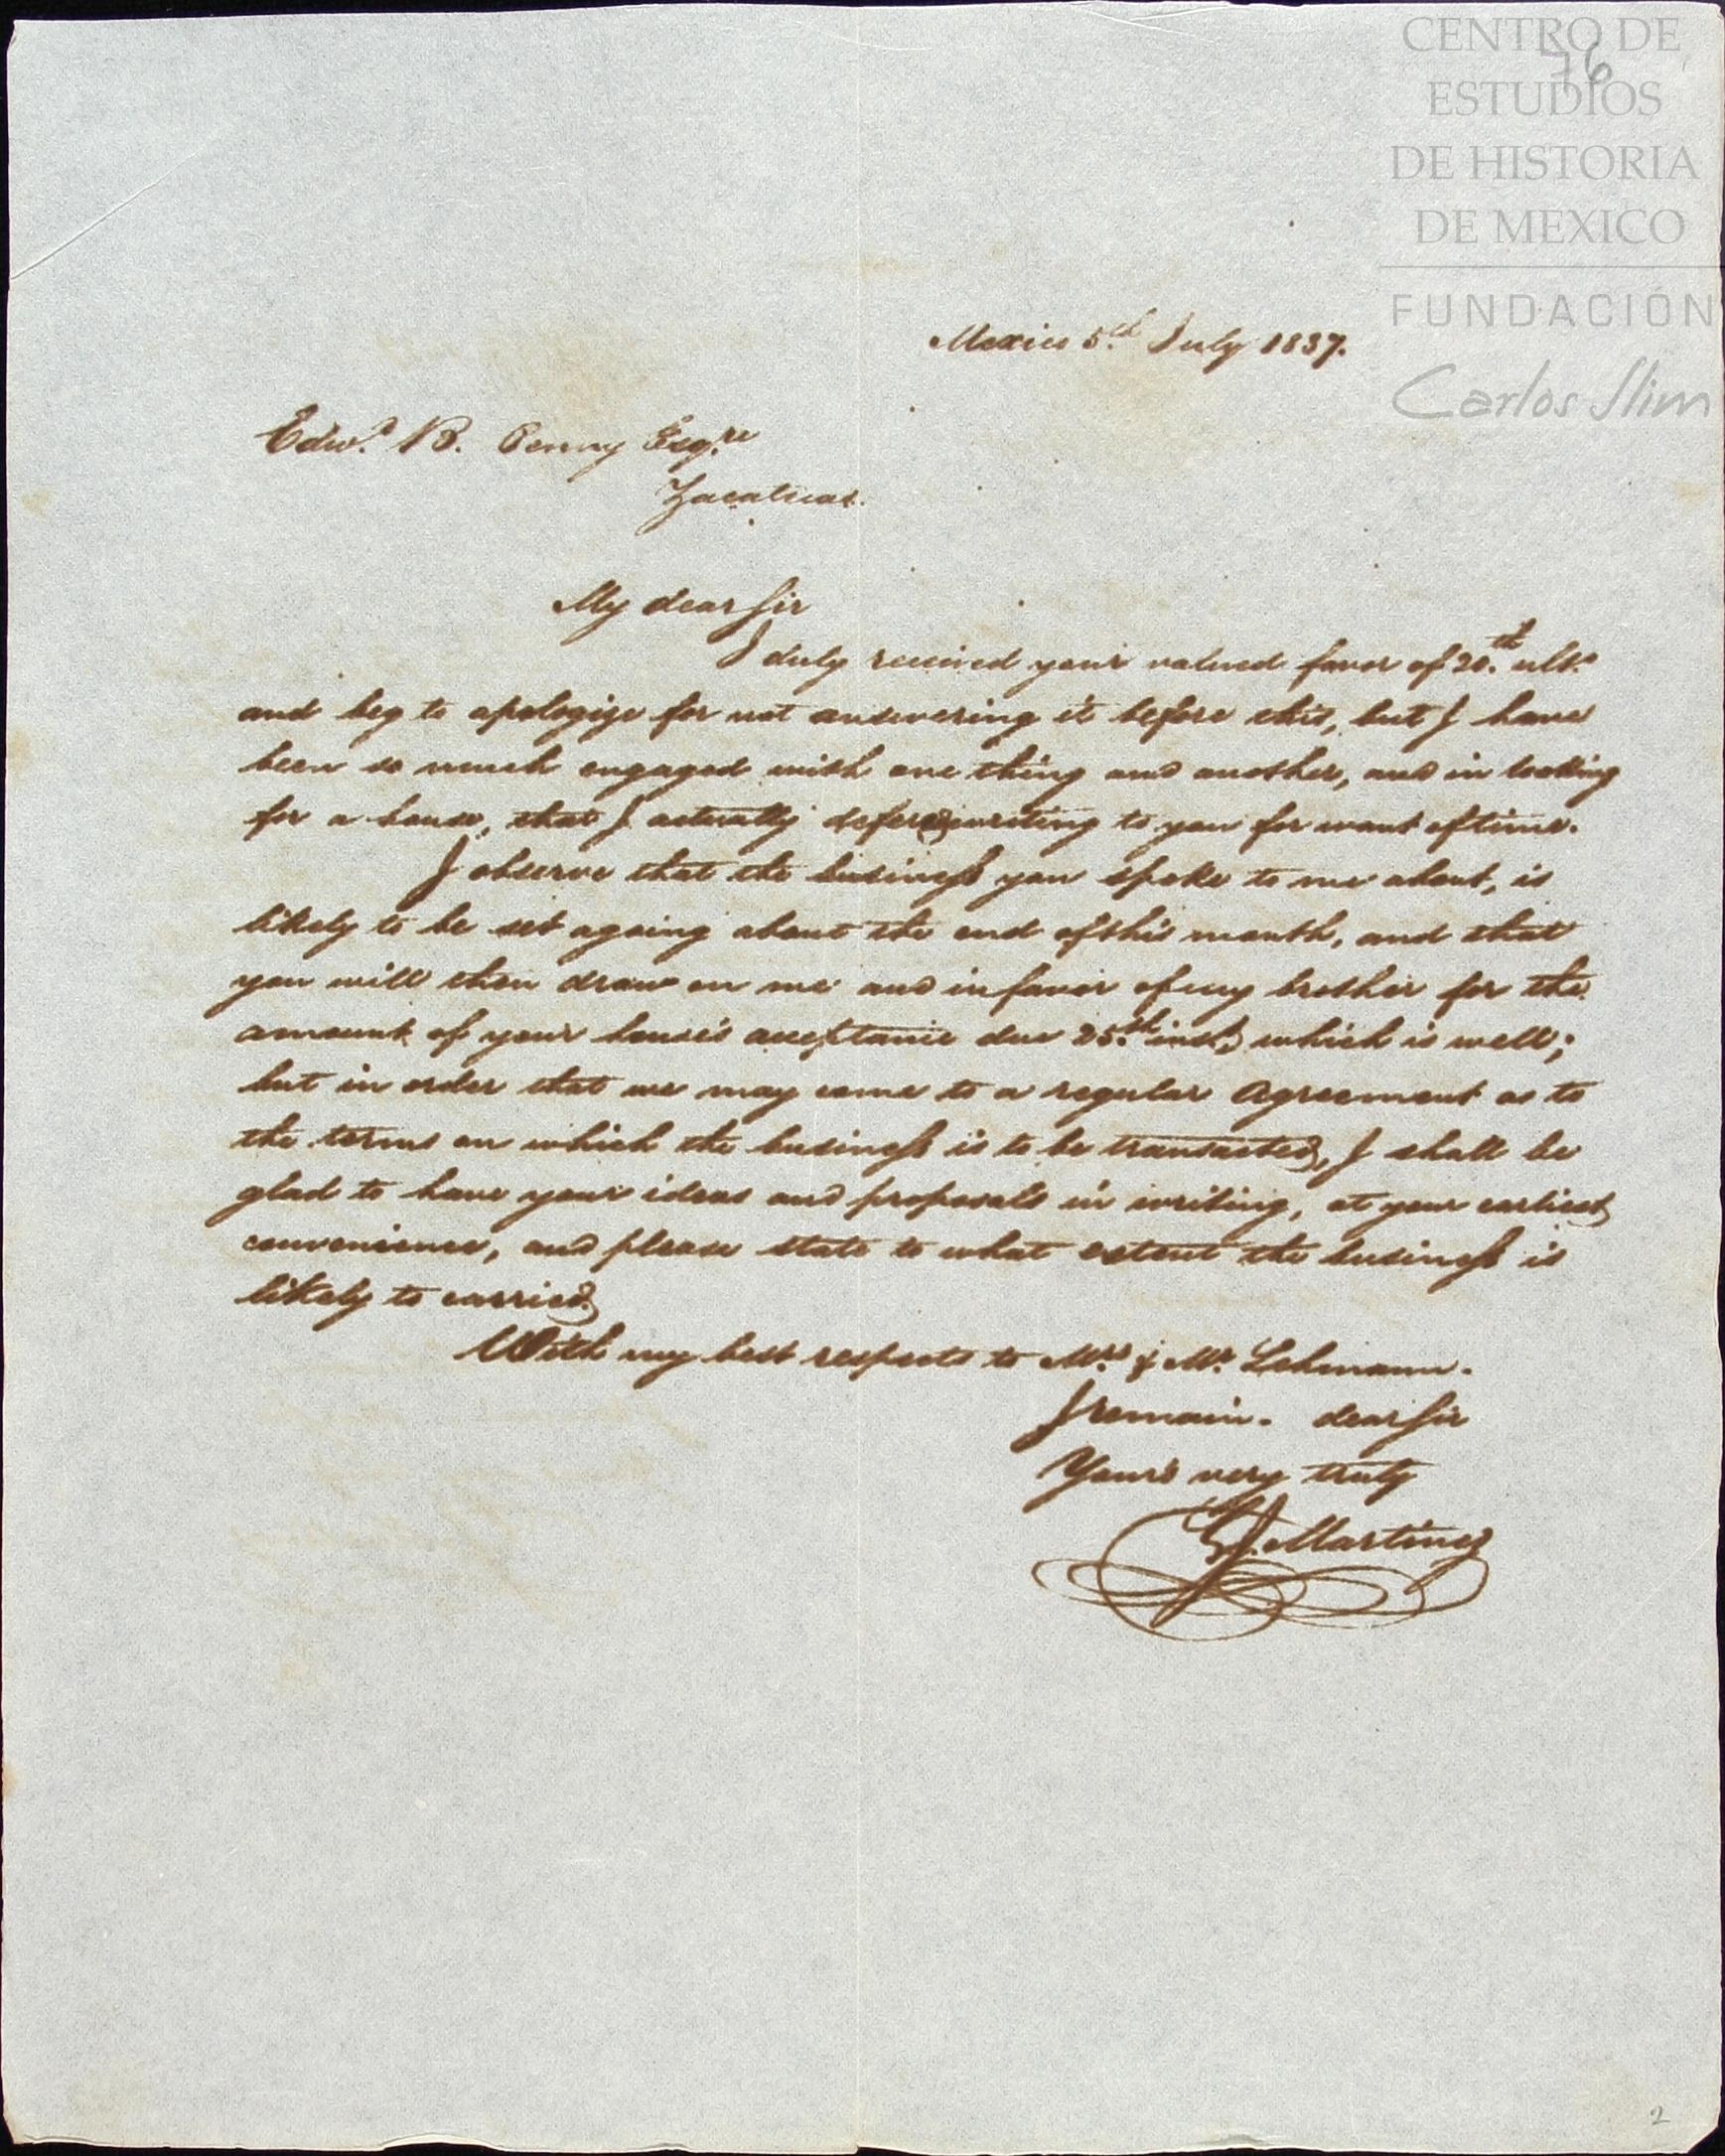 CENTRO DE
ESTUDIOS
DE HISTORIA
DE MEXICO
FUNDACIÓN
Carlos Slim
76
Mexico 5.th July 1837.
Edw.d B. Penny Esq.re
Zacatecas.
My dear Sir
I duly received your valued favor of 20.th ult.o
and beg to apologize for not answering it before this, but I have
been so much engaged with one thing and another, and in looking
for a house, that I actually defered writing to you for want of time.
I observe that the business you spoke to me about, is
likely to be set agoing about the end of this month, and that
you will then draw on me and in favor of my brother for the
amount of your house's acceptance due 25.th inst, which is well;
but in order that we may come to a regular Agreement as to
the terms on which the business is to be transacted, I shall be
glad to have your ideas and proposals in writing, at your earliest
convenience, and please state to what extent the business is
likely to carried.
With my best respects to M.rs & M.r Lehmann.
I remain. dear Sir
Your's very truly
Martinez
2